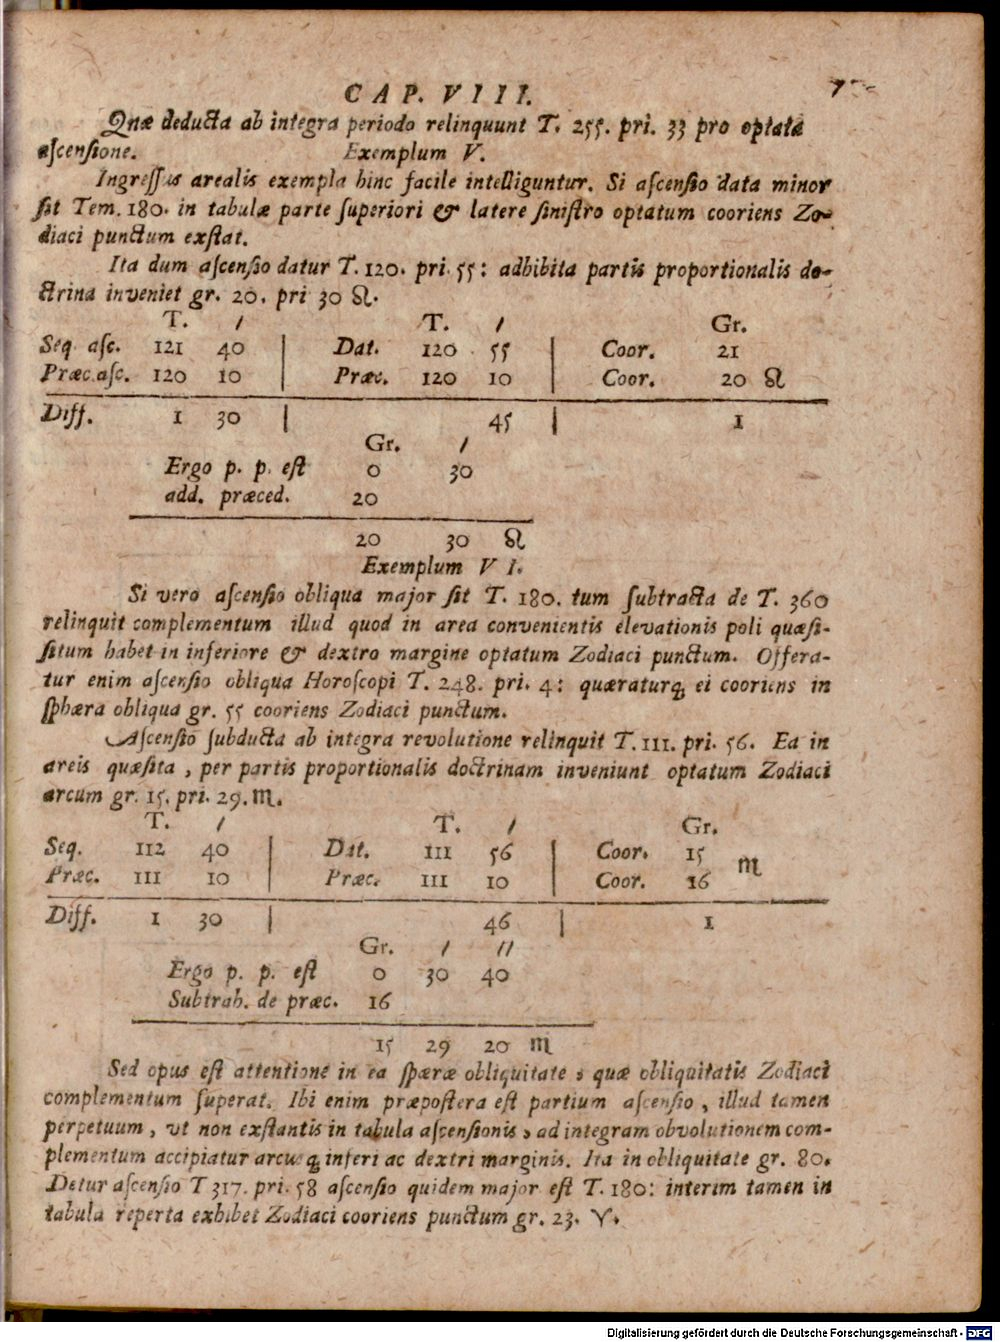 CAP. VIII.
Quæ deducta ab integra periodo relinquunt T. 255. pri. 33 pro optata
aſcenſione. Exemplum V.
Ingreſſus arealis exempla hinc facile intelliguntur. Si aſcenſio data minor
ſit Tem. 180. in tabulæ parte ſuperiori & latere ſiniſtro optatum cooriens Zo-
diaci punctum exſtat.
Ita dum aſcenſio datur T. 120. pri. 55: adhibita partis proportionalis do-
ctrina inveniet gr. 20. pri 30 ♌.
T. / T. / Gr.
Seq aſc. 121 40 | Dat. 120 55 | Coor. 21
Præc.aſc. 120 10 | Præc. 120 10 | Coor. 20 ♌
Diff. 1 30 | 45 | 1
Gr. /
Ergo p. p. eſt 0 30
add. præced. 20
20 30 ♌
Exemplum VI.
Si vero aſcenſio obliqua major ſit T. 180. tum ſubtracta de T. 360
relinquit complementum illud quod in area convenientis elevationis poli quæſi-
ſitum habet in inferiore & dextro margine optatum Zodiaci punctum. Offera-
tur enim aſcenſio obliqua Horoſcopi T. 248. pri. 4: quæraturq; ei cooriens in
ſphæra obliqua gr. 55 cooriens Zodiaci punctum.
Aſcenſio ſubducta ab integra revolutione relinquit T. 111. pri. 56. Ea in
areis quæſita, per partis proportionalis doctrinam inveniunt optatum Zodiaci
arcum gr. 15. pri. 29. ♏.
T. / T. / Gr.
Seq. 112 40 | Dat. 111 56 | Coor. 15 ♏
Præc. 111 10 | Præc. 111 10 | Coor. 16
Diff. 1 30 | 46 | 1
Gr. / //
Ergo p. p. eſt 0 30 40
Subtrah. de præc. 16
15 29 20 ♏
Sed opus eſt attentione in ea ſpæræ obliquitate, quæ obliquitatis Zodiaci
complementum ſuperat. Ibi enim præpoſtera eſt partium aſcenſio, illud tamen
perpetuum, ut non exſtantis in tabula aſcenſionis, ad integram obvolutionem com-
plementum accipiatur arcusq; inferi ac dextri marginis. Ita in obliquitate gr. 80.
Detur aſcenſio T 317. pri. 58 aſcenſio quidem major eſt T. 180: interim tamen in
tabula reperta exhibet Zodiaci cooriens punctum gr. 23. ♈.
Digitalisierung gefördert durch die Deutsche Forschungsgemeinschaft - DFG